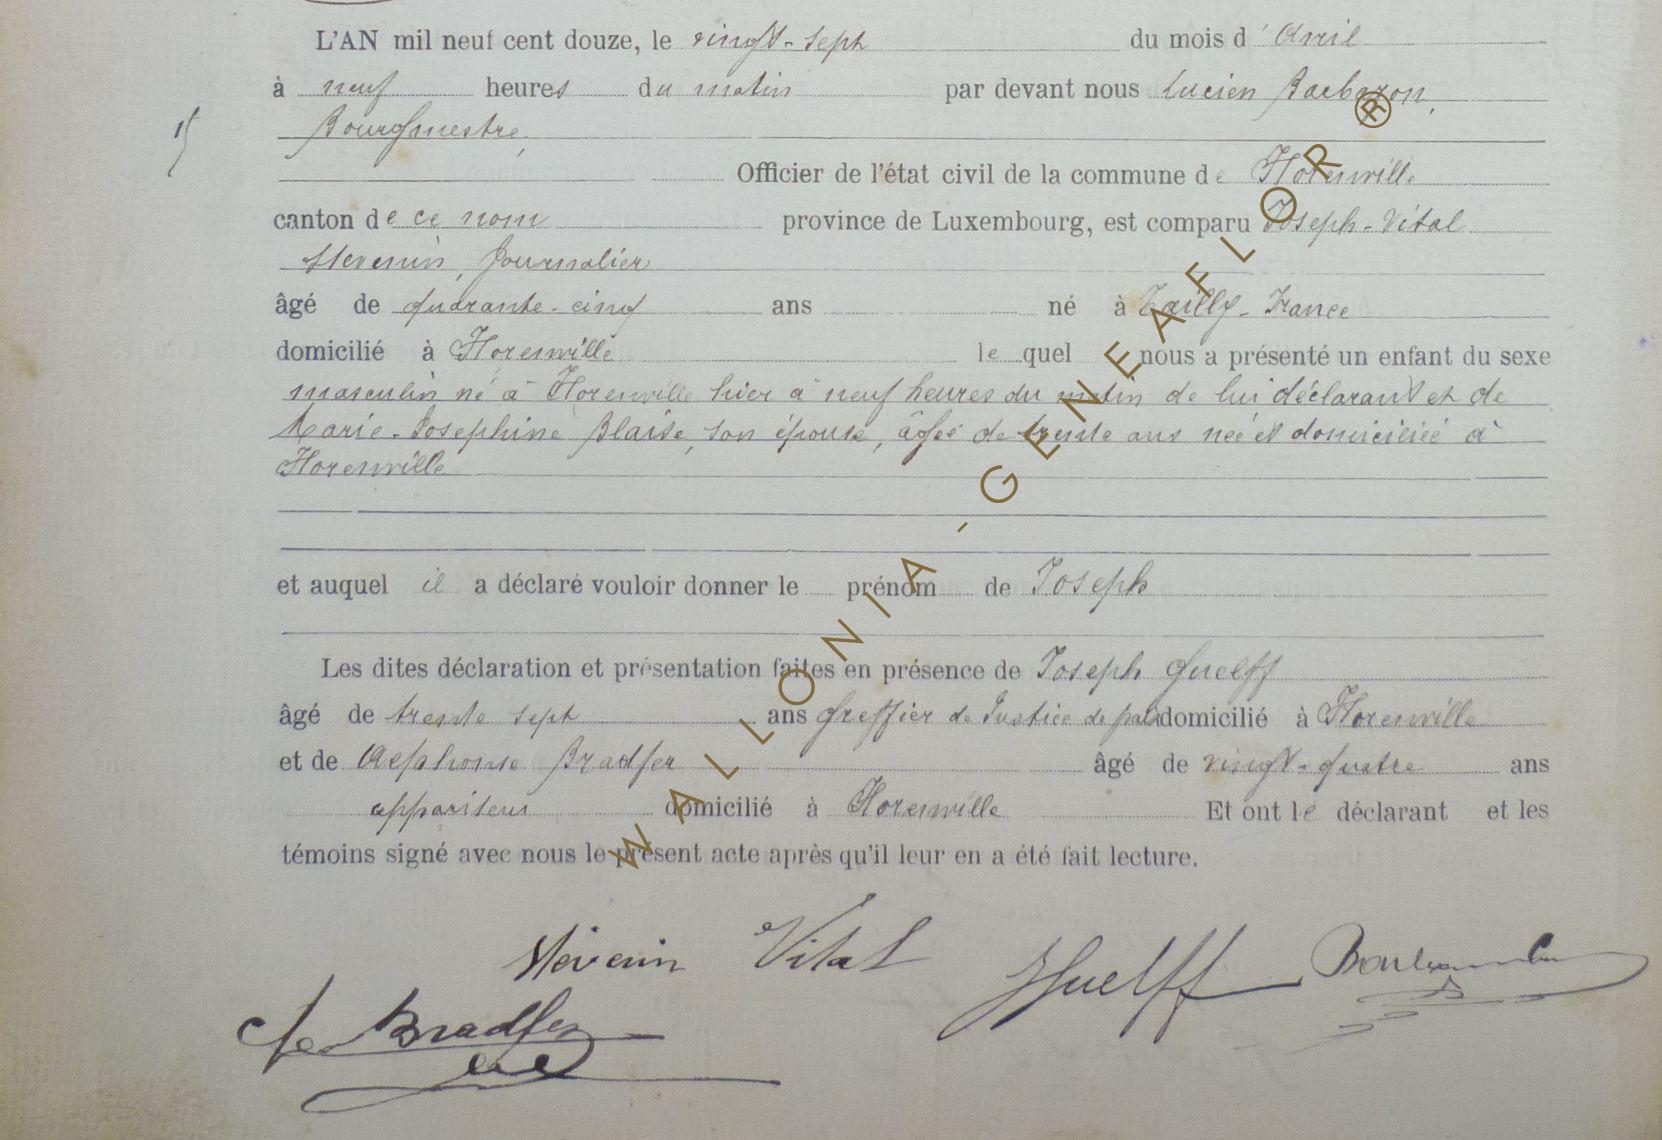 L'AN mil neuf cent douze, le vingt-sept du mois d'Avril
à neuf heures du matin par devant nous Lucien Barbazon,
Bourgmestre,
Officier de l'état civil de la commune de Florenville
canton de ce nom province de Luxembourg, est comparu Joseph-Vital
Stevenin, Journalier
âgé de quarante-cinq ans né à Tailly-France
domicilié à Florenville lequel nous a présenté un enfant du sexe
masculin né à Florenville hier à neuf heures du matin de lui déclarant et de
Marie-Josephine Blaise, son épouse, âgée de trente ans née et domiciliée à
Florenville
et auquel il a déclaré vouloir donner le prénom de Joseph
Les dites déclaration et présentation faites en présence de Joseph Guelff
âgé de trente sept ans Greffier de Justice de paix domicilié à Florenville
et de Alphonse Bradfer âgé de vingt-quatre ans
appariteur domicilié à Florenville Et ont le déclarant et les
témoins signé avec nous le présent acte après qu'il leur en a été fait lecture.
Stévenin Vital JGuelff
Bradfer
WALLONIA-GENEAFLOR®